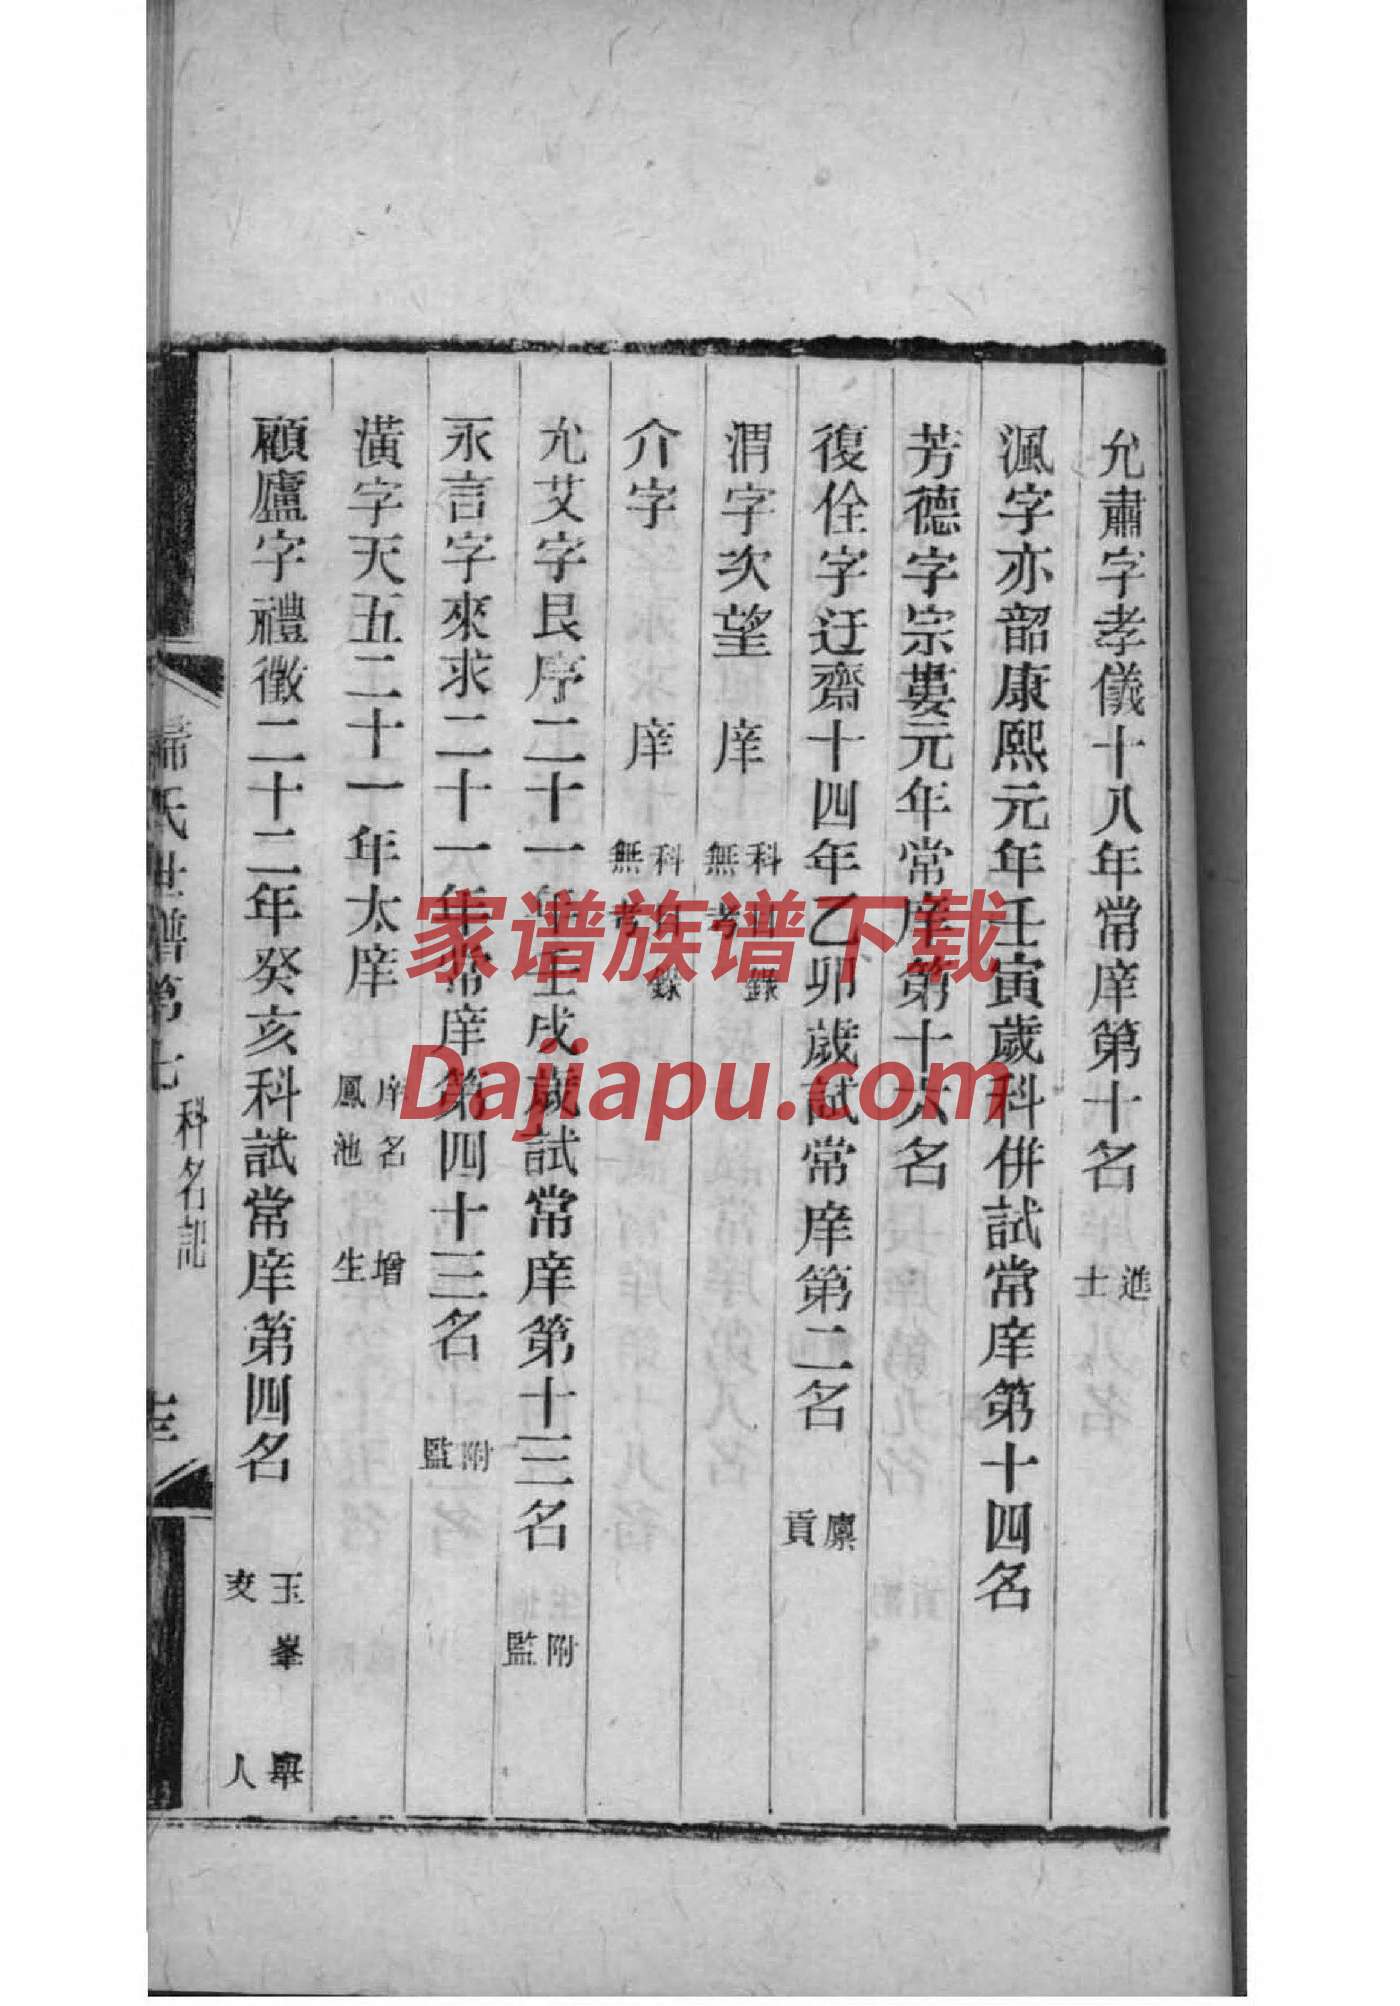 允肅字孝儀十八年常庠第十名 進士
渢字亦韶康熙元年壬寅歲科併試常庠第十四名
芳德字宗蔞元年常庠第十六名
復佺字迂齋十四年乙卯歲試常庠第二名 廪貢
渭字次望 庠 科目錄無考
介字 庠 科目錄無考
允艾字艮序二十一年壬戌歲試常庠第十三名 附監
永言字來求二十一年常庠第四十三名 附監
潢字天五二十一年太庠 庠名鳳池 增生
顧廬字禮徵二十二年癸亥科試常庠第四名 玉峯 舉人
氏世譜第七 科名記
家谱族谱下载
Dajiapu.com